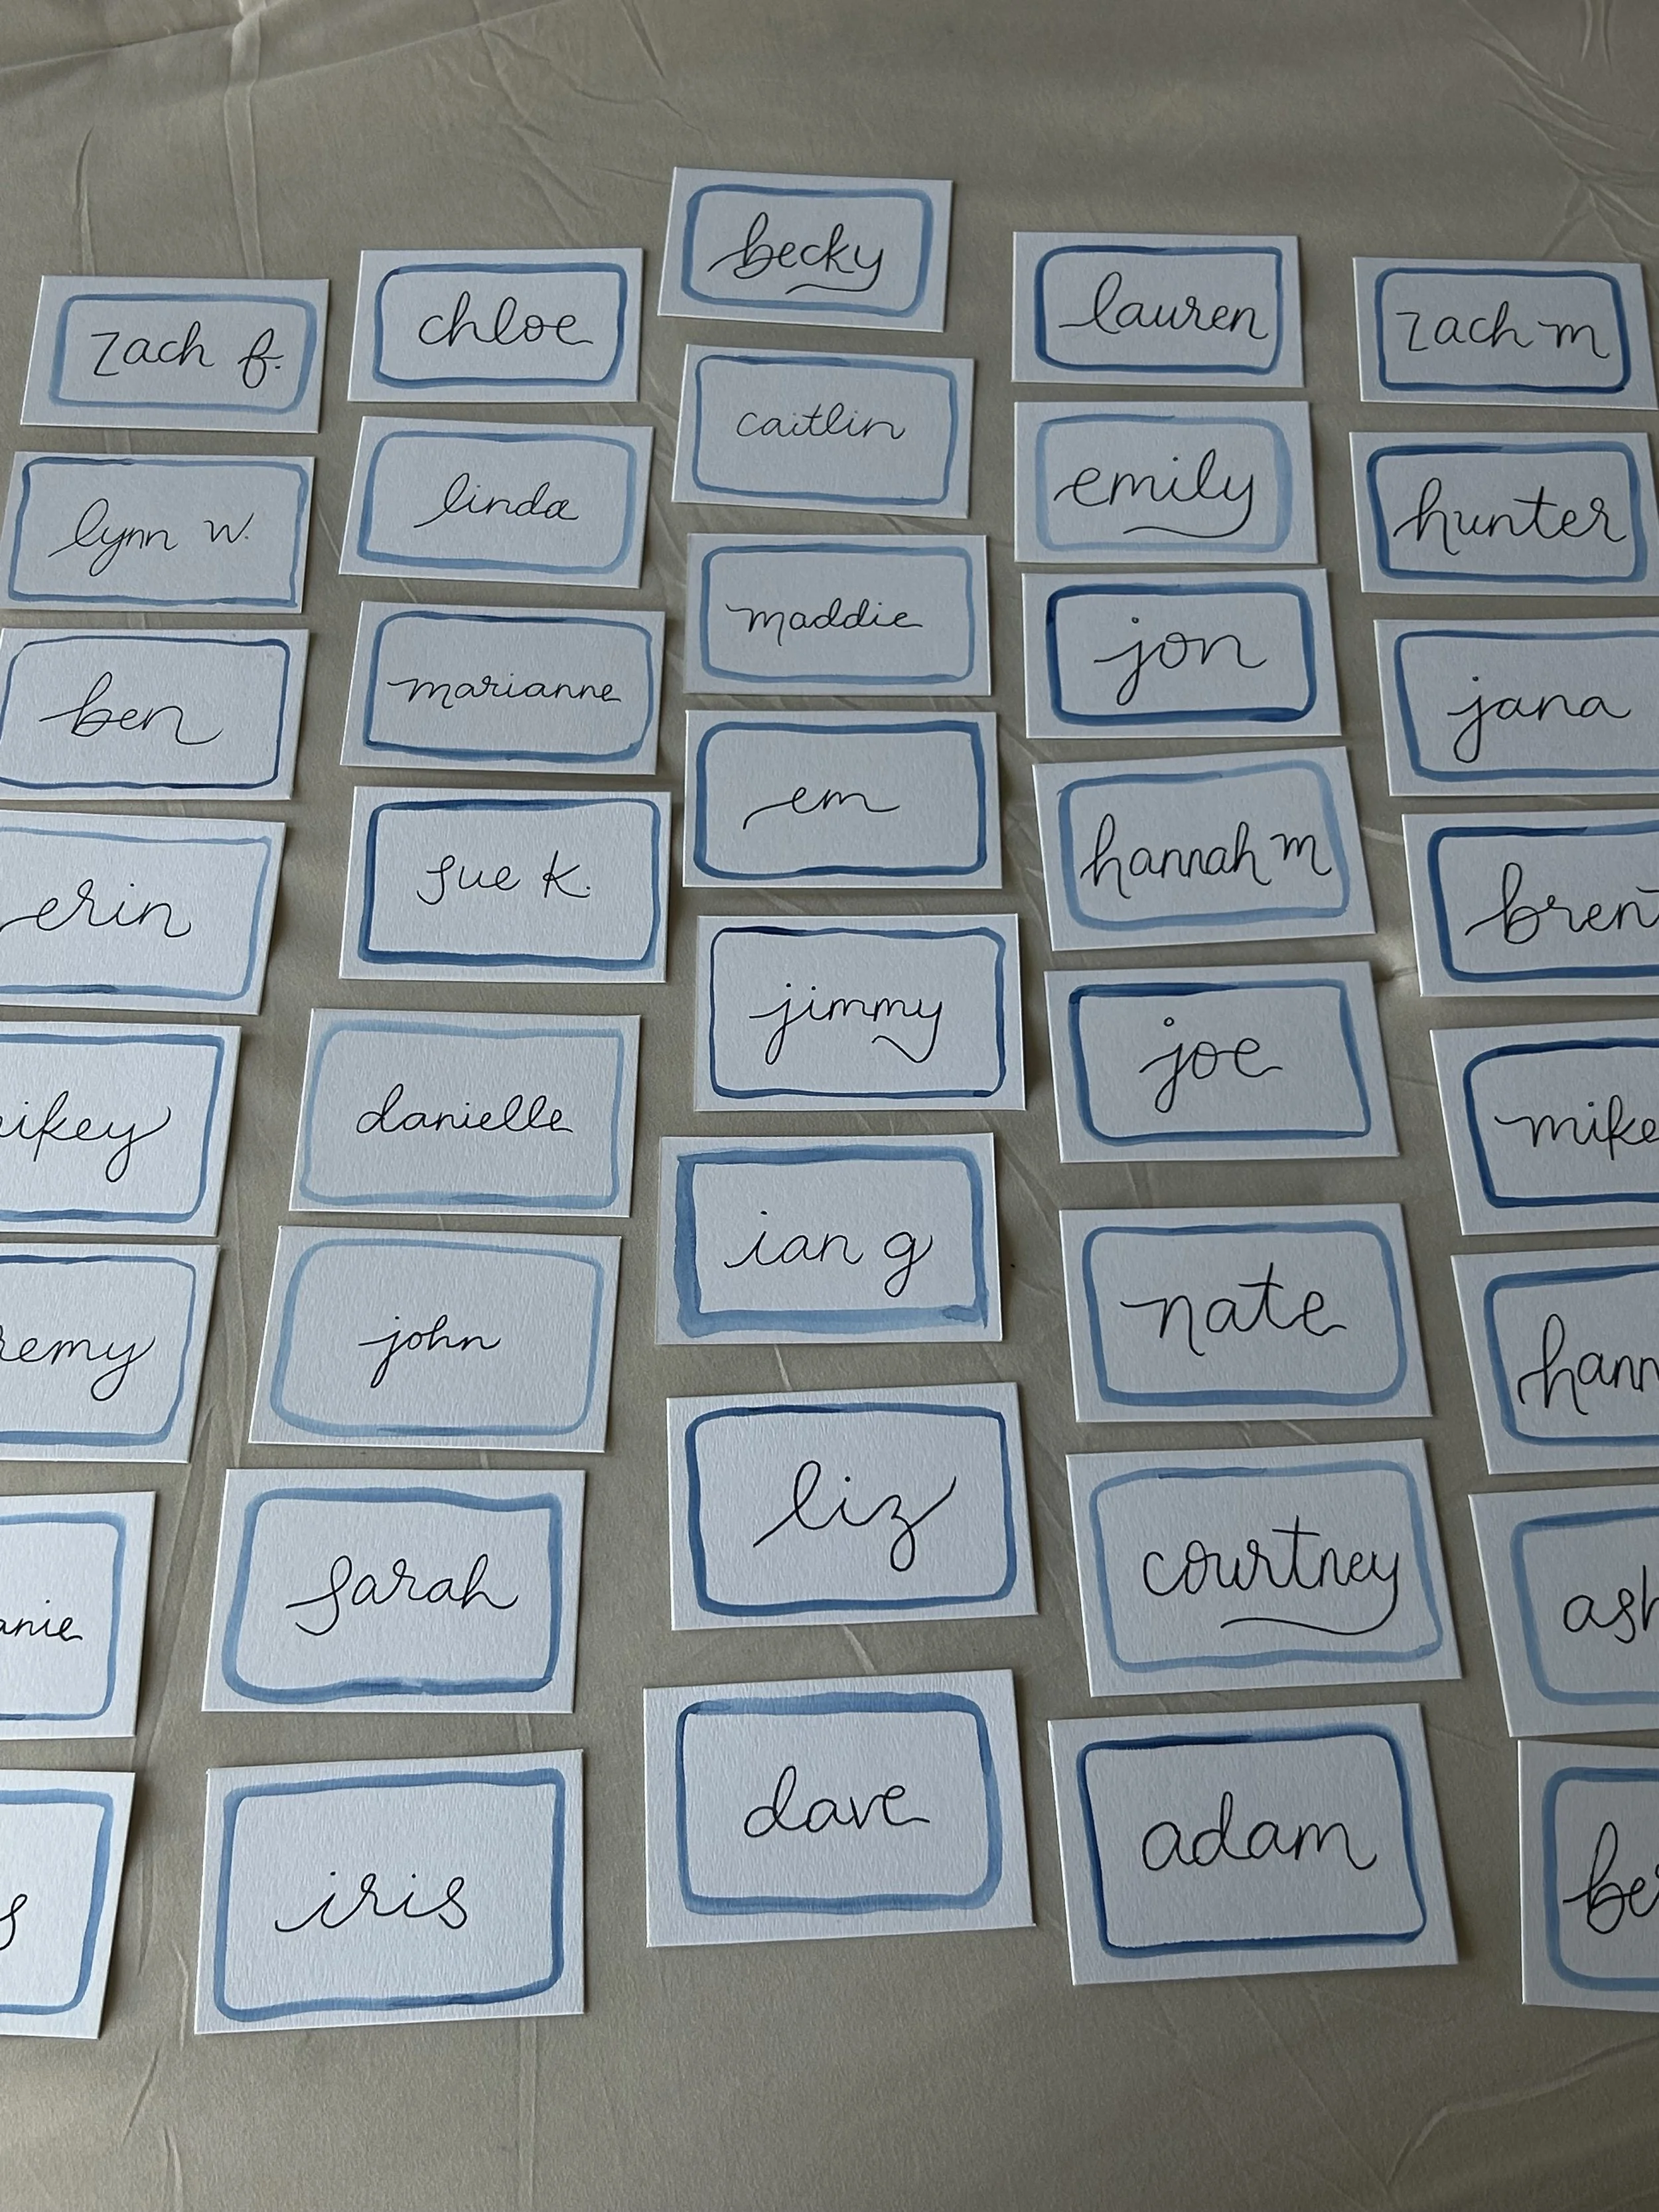 zach f.
lynn w.
ben
erin
chloe
linda
marianne
sue k.
danielle
john
sarah
iris
becky
caitlin
maddie
em
jimmy
ian g
liz
dave
lauren
emily
jon
hannah m
joe
nate
courtney
adam
zach m
hunter
jana
brent